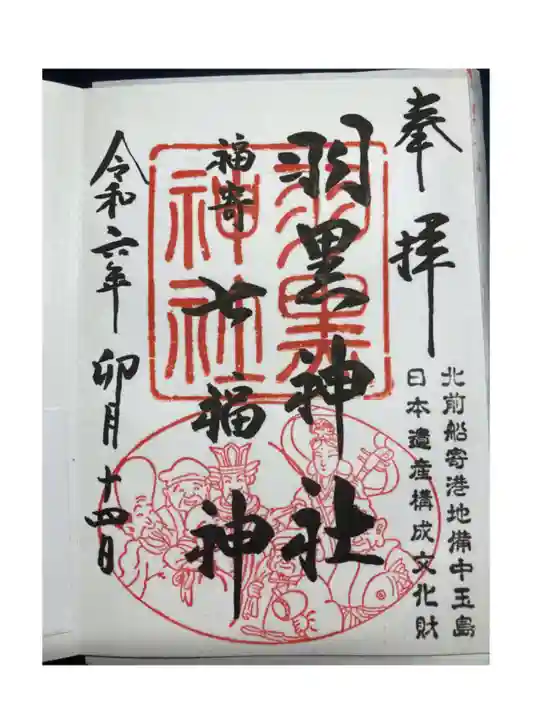 奉拝
北前船寄港地備中玉島
日本遺産構成文化財
羽黒神社
羽黒神社
福寄
七福神
令和六年卯月十四日